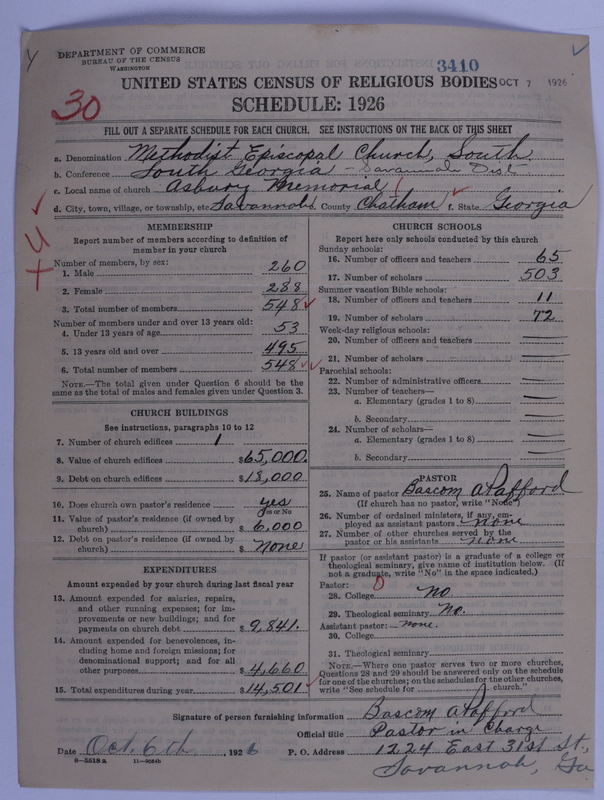 DEPARTMENT OF COMMERCE
BUREAU OF THE CENSUS
WASHINGTON
3410
UNITED STATES CENSUS OF RELIGIOUS BODIES OCT 7 1926
30
SCHEDULE: 1926
FILL OUT A SEPARATE SCHEDULE FOR EACH CHURCH. SEE INSTRUCTIONS ON THE BACK OF THIS SHEET
a. Denomination Methodist Episcopal Church, South
b. Conference South Georgia - Savannah Dist
c. Local name of church Asbury Memorial
d. City, town, village, or township, etc Savannah County Chatham f. State Georgia
MEMBERSHIP
Report number of members according to definition of
member in your church
Number of members, by sex:
1. Male 260
2. Female 288
3. Total number of members 548
Number of members under and over 13 years old:
4. Under 13 years of age 53
5. 13 years old and over 495
6. Total number of members 548
NOTE.—The total given under Question 6 should be the
same as the total of males and females given under Question 3.
CHURCH BUILDINGS
See instructions, paragraphs 10 to 12
7. Number of church edifices 1
8. Value of church edifices $65,000.
9. Debt on church edifices $18,000
10. Does church own pastor's residence? yes
Yes or No
11. Value of pastor's residence (if owned by
church) $6,000
12. Debt on pastor's residence (if owned by
church) $ None
EXPENDITURES
Amount expended by your church during last fiscal year
13. Amount expended for salaries, repairs,
and other running expenses; for im-
provements or new buildings; and for
payments on church debt $9,841.
14. Amount expended for benevolences, in-
cluding home and foreign missions; for
denominational support; and for all
other purposes $4,660
15. Total expenditures during year $14,501
CHURCH SCHOOLS
Report here only schools conducted by this church
Sunday schools:
16. Number of officers and teachers 65
17. Number of scholars 503
Summer vacation Bible schools:
18. Number of officers and teachers 11
19. Number of scholars 72
Week-day religious schools:
20. Number of officers and teachers
21. Number of scholars
Parochial schools:
22. Number of administrative officers
23. Number of teachers—
a. Elementary (grades 1 to 8)
b. Secondary
24. Number of scholars—
a. Elementary (grades 1 to 8)
b. Secondary
PASTOR
25. Name of pastor Bascom A Pafford
(If church has no pastor, write "None")
26. Number of ordained ministers, if any, em-
ployed as assistant pastors none
27. Number of other churches served by the
pastor or his assistants none
If pastor (or assistant pastor) is a graduate of a college or
theological seminary, give name of institution below. (If
not a graduate, write "No" in the space indicated.)
Pastor: 0
28. College No
29. Theological seminary No.
Assistant pastor: none.
30. College
31. Theological seminary
NOTE.—Where one pastor serves two or more churches,
Questions 28 and 29 should be answered only on the schedule
for one of the churches; on the schedules for the other churches,
write "See schedule for church."
Signature of person furnishing information Bascom A Pafford
Official title Pastor in Charge
Date Oct. 6th, 1926 P. O. Address 1224 East 31st St.,
8—5518a Savannah, Ga